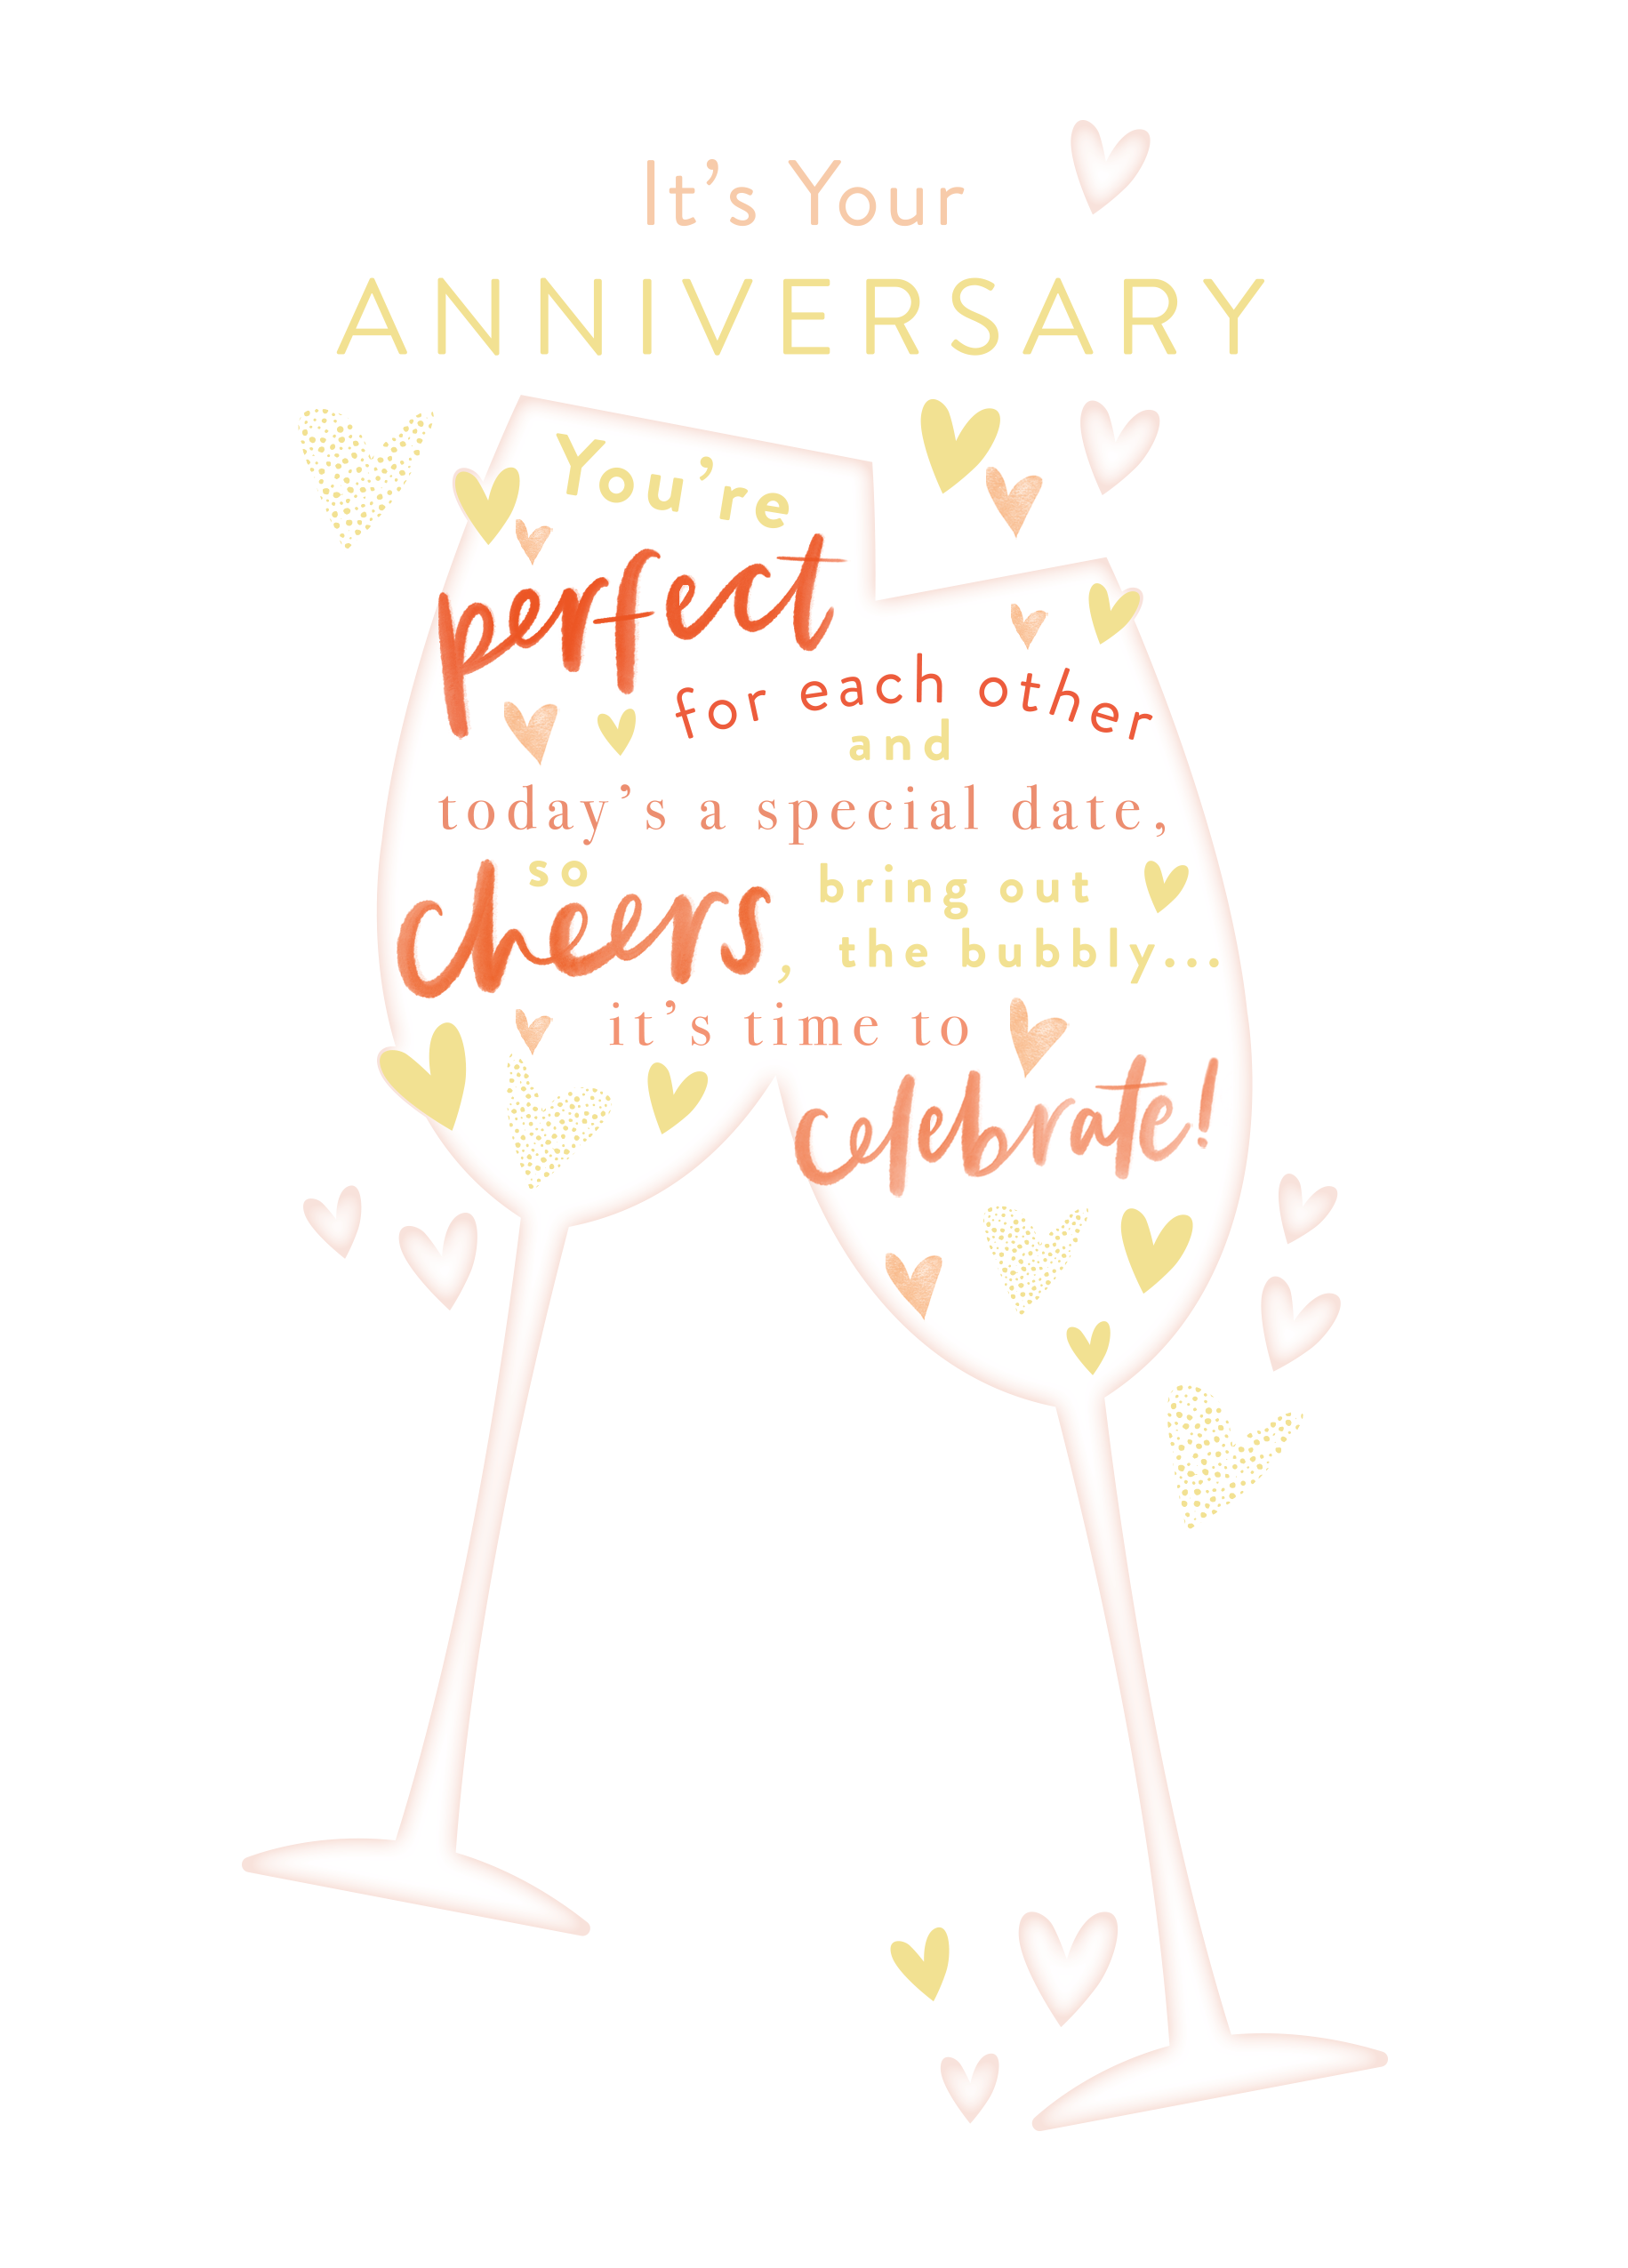 It's Your
ANNIVERSARY
You're
perfect
for each other
and
today's a special date,
so
cheers, bring out
the bubbly...
it's time to
celebrate!